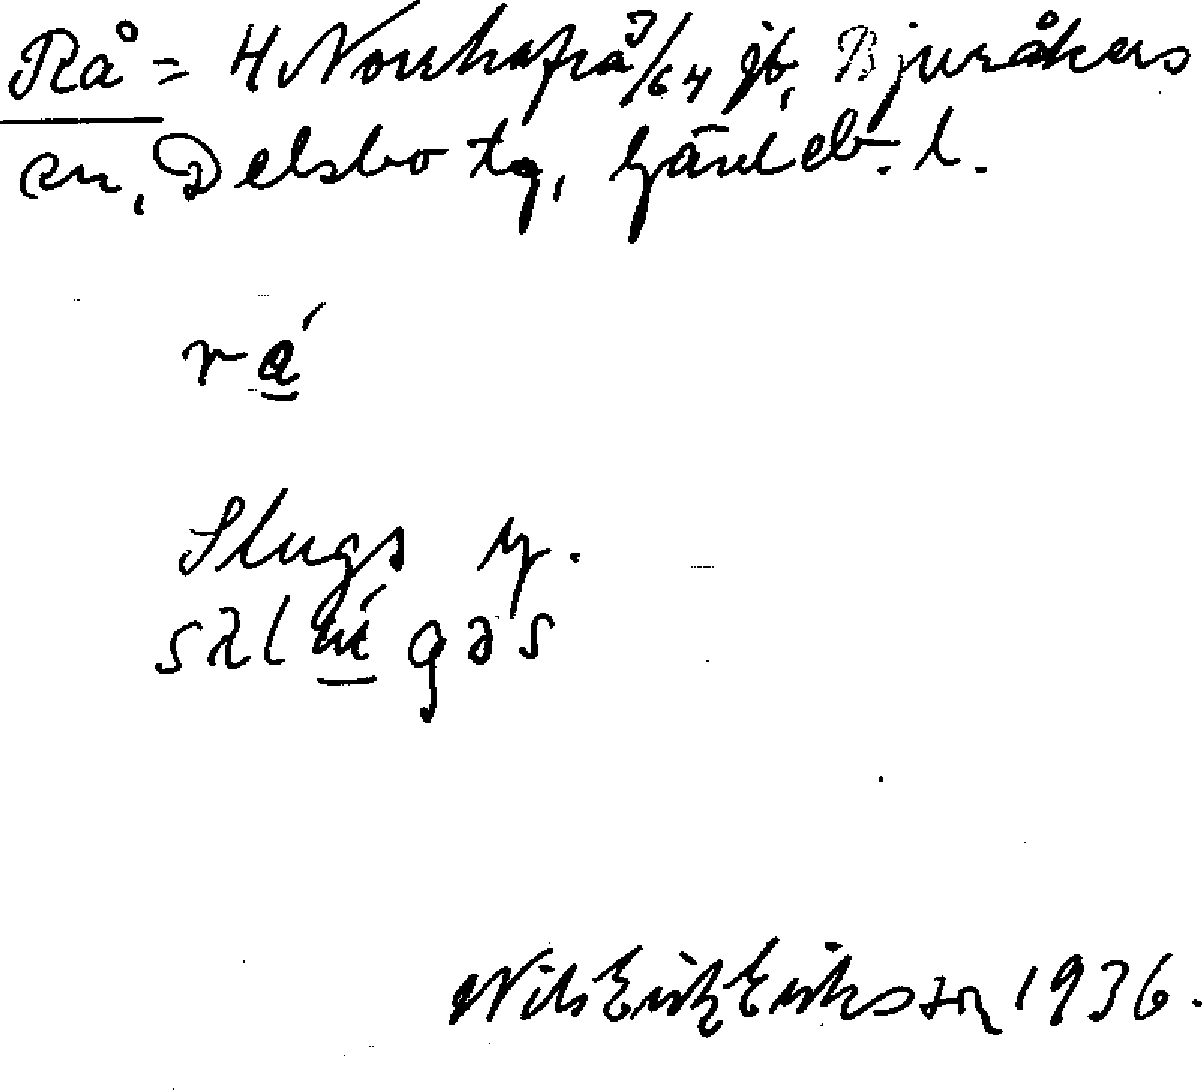 Rå = 4 Norrhavrå 3/64 jb, Bjuråkers
sn, Delsbo tg, Gävleb. l.
rá
Slugs y.
Nils Erik Eriksson 1936.